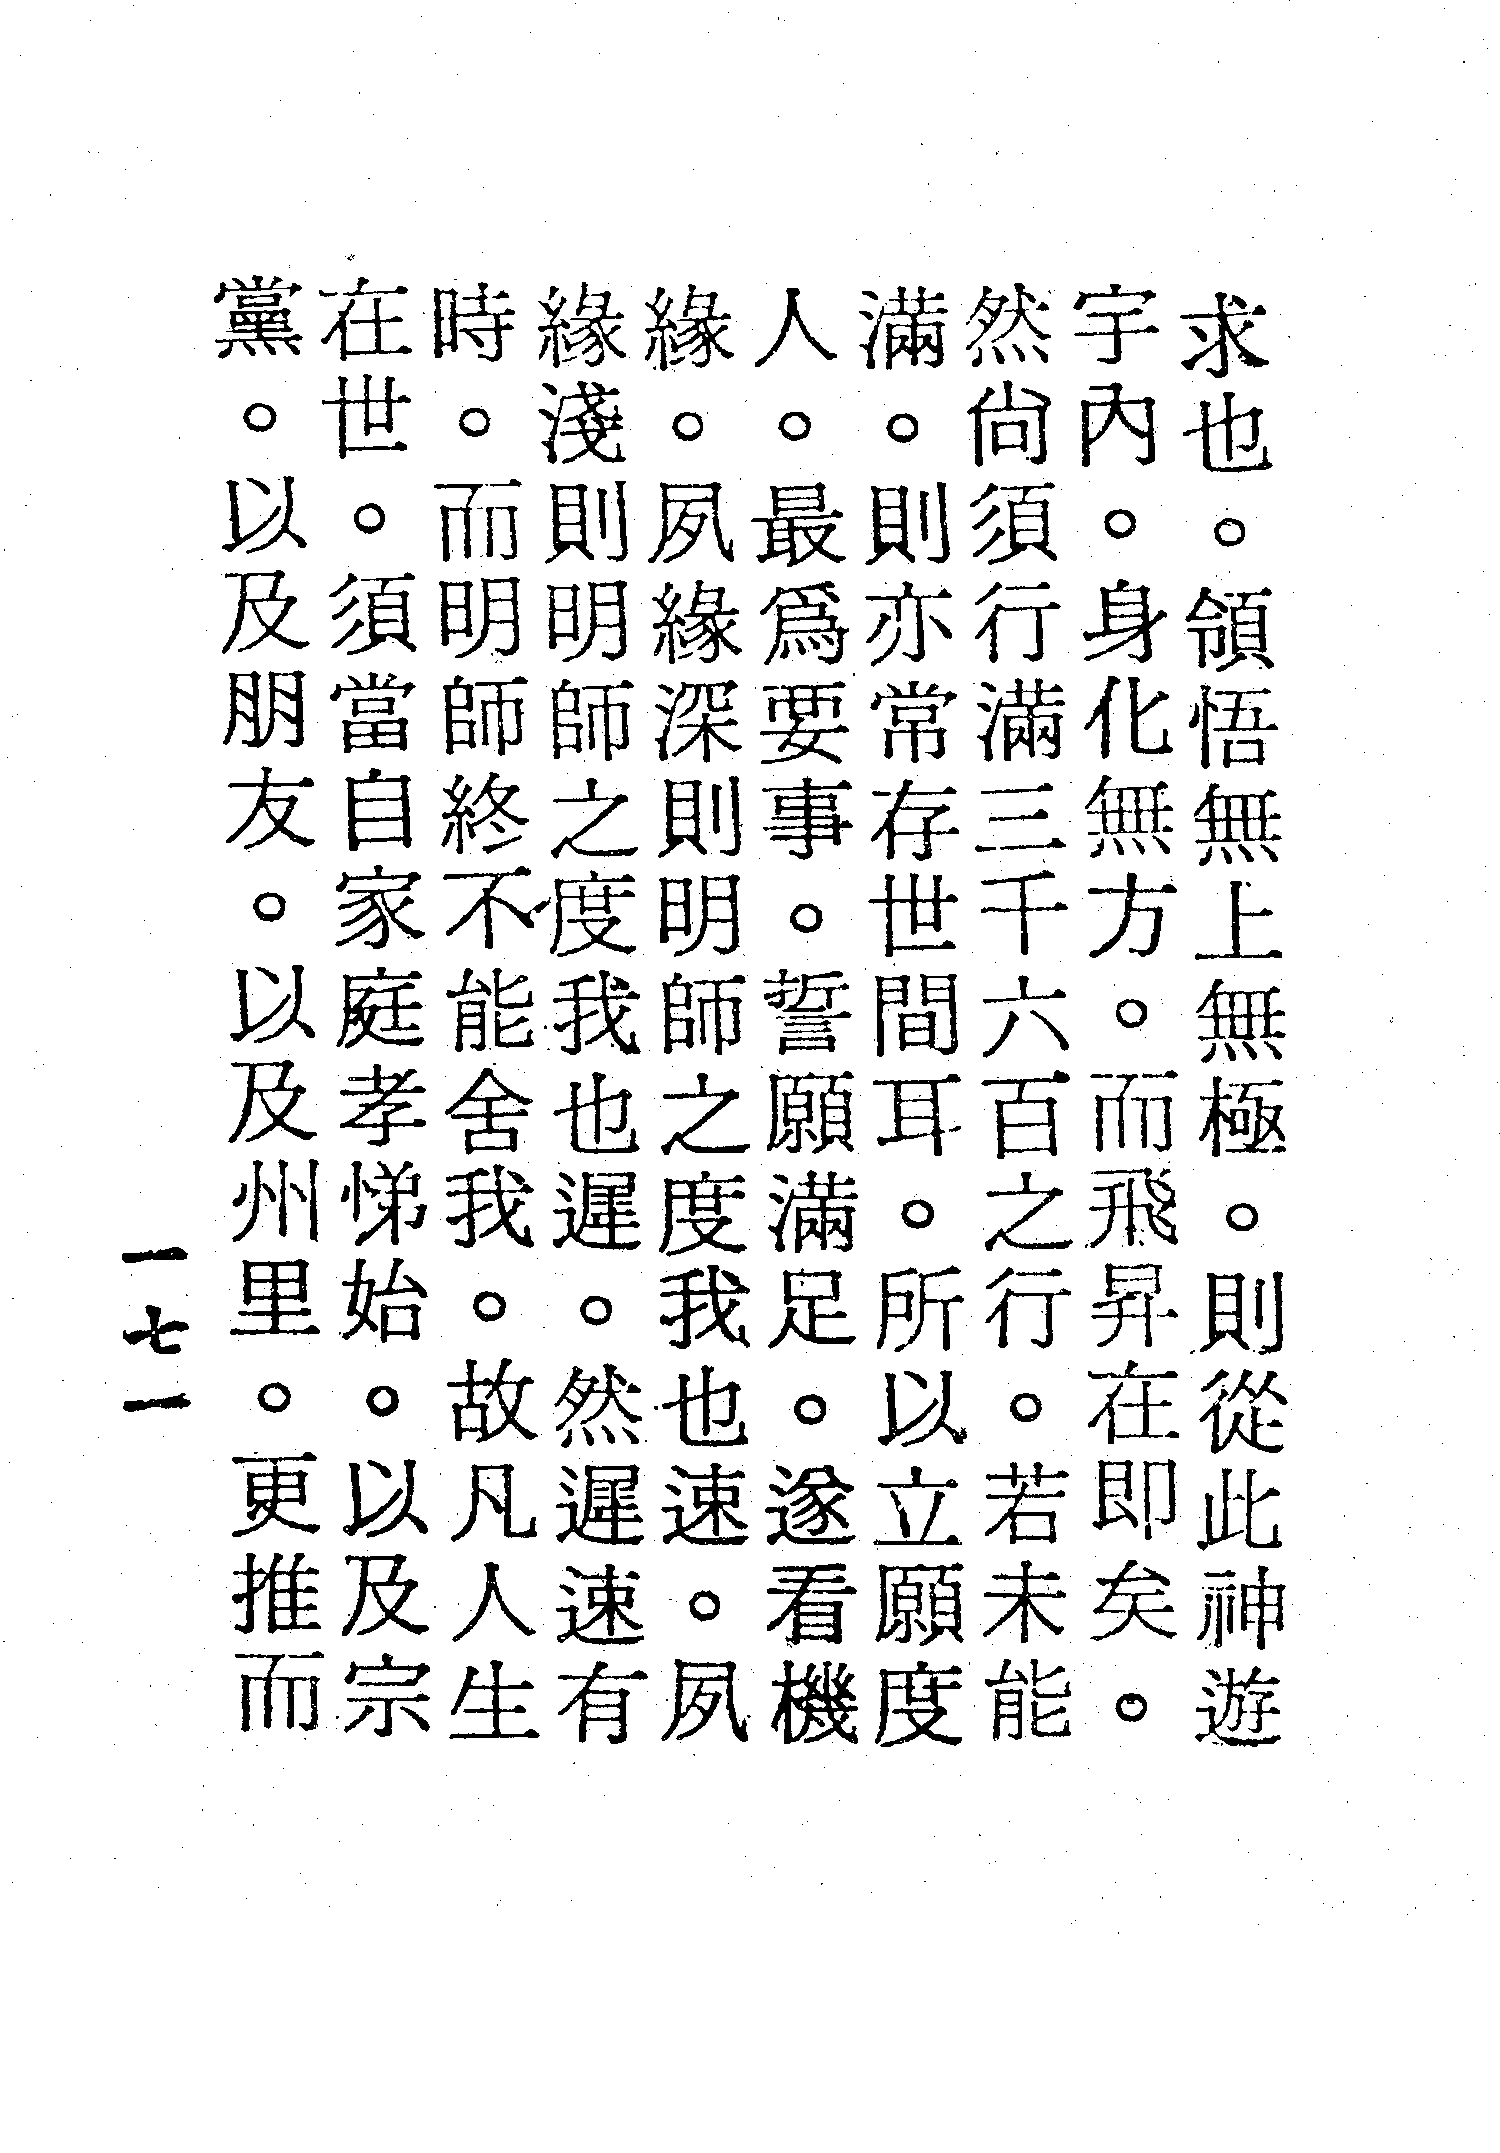 求也。領悟無上無極。則從此神遊
宇內。身化無方。而飛昇在即矣。
然尙須行滿三千六百之行。若未能
滿。則亦常存世間耳。所以立願度
人。最爲要事。誓願滿足。遂看機
緣。夙緣深則明師之度我也速。夙
緣淺則明師之度我也遲。然遲速有
時。而明師終不能舍我。故凡人生
在世。須當自家庭孝悌始。以及宗
黨。以及朋友。以及州里。更推而
一七一